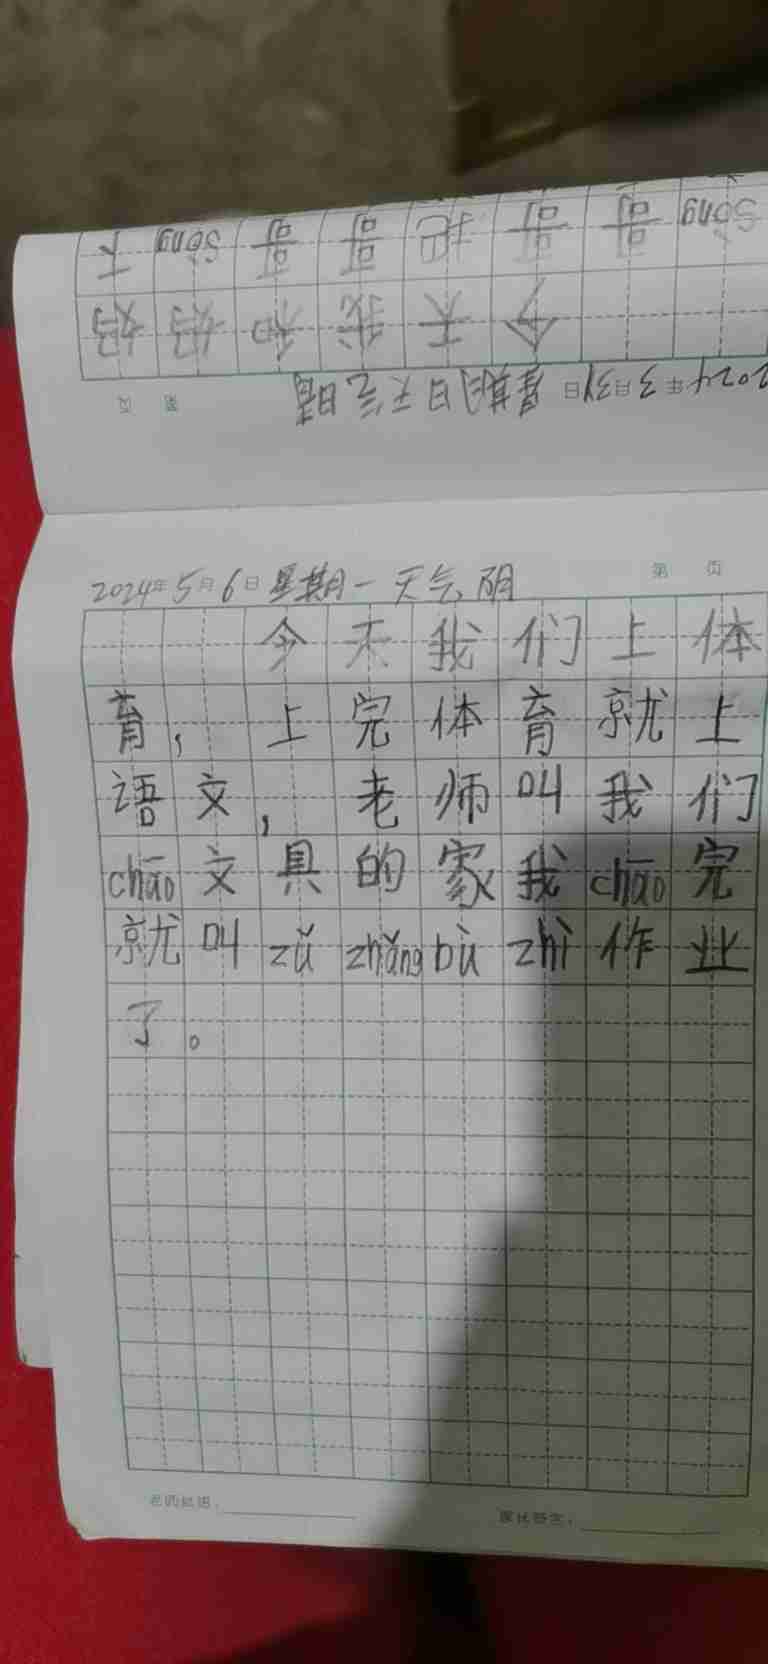 sòng 哥 哥 把 哥 哥 sòng 下
今 天 我 和 好 好
2024年3月31日 星期日天气晴
第 页
2024年5月6日 星期一 天气 阴
第 页
今天我们上体
育，上完体育就上
语文，老师叫我们
chāo文具的家我chāo完
就叫zǔ zhǎng bù zhì作业
了。
老师批语：
家长签字：